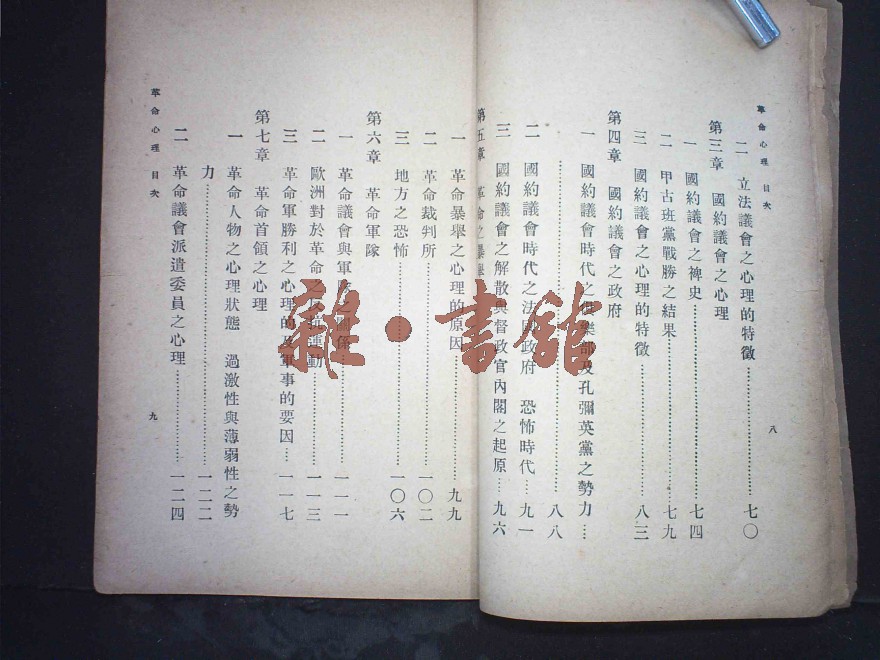 革命心理 目次
二 立法議會之心理的特徵……七〇
第三章 國約議會之心理
一 國約議會之裨史……七四
二 甲古班黨戰勝之結果……七九
三 國約議會之心理的特徵……八三
第四章 國約議會之政府
一 國約議會時代之俱樂部及孔彌英黨之勢力…
……八八
二 國約議會時代之法國政府 恐怖時代…九一
三 國約議會之解散與督政官內閣之起原…九六
八
第五章 革命之暴舉
一 革命暴舉之心理的原因……九九
二 革命裁判所……一〇二
三 地方之恐怖……一〇六
第六章 革命軍隊
一 革命議會與軍隊之關係……一一一
二 歐洲對於革命之反抗運動……一一三
三 革命軍勝利之心理的及軍事的要因…一一七
第七章 革命首領之心理
一 革命人物之心理狀態 過激性與薄弱性之勢
力……一二二
二 革命議會派遣委員之心理……一二四
革命心理 目次
九
雜·書館